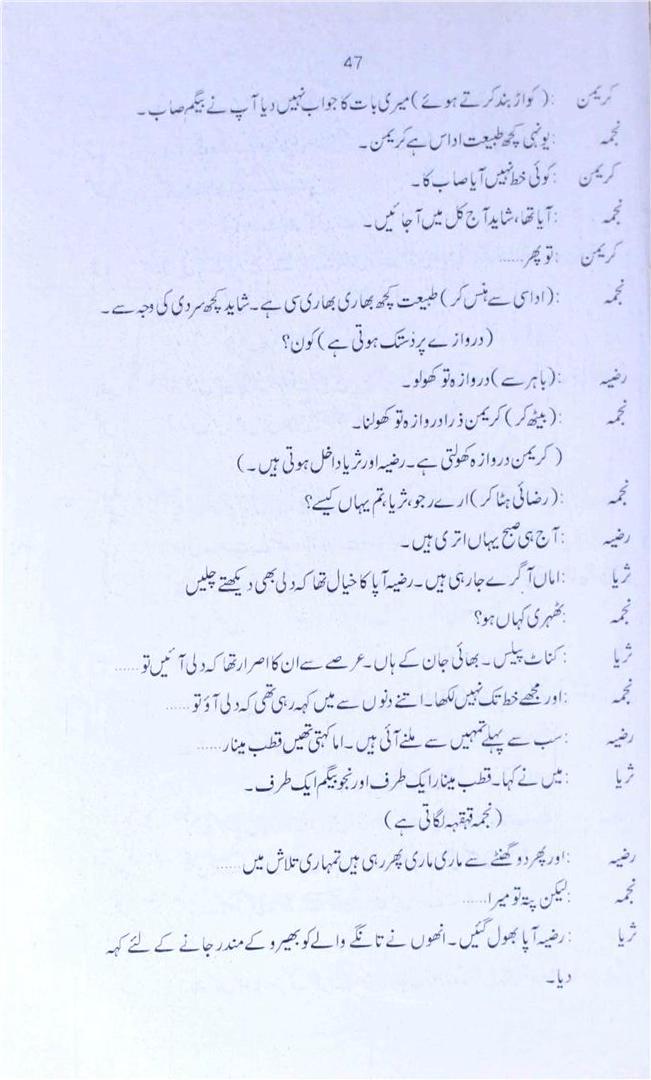 47
کریمن :(کواڑ بند کرتے ہوئے) میری بات کا جواب نہیں دیا آپ نے بیگم صاب۔
نجمہ :یونہی کچھ طبیعت اداس ہے کریمن۔
کریمن :کوئی خط نہیں آیا صاب کا۔
نجمہ :آیا تھا، شاید آج کل میں آ جائیں۔
کریمن :تو پھر......
نجمہ :(اداسی سے ہنس کر) طبیعت کچھ بھاری بھاری سی ہے۔ شاید کچھ سردی کی وجہ سے۔
(دروازے پر دستک ہوتی ہے) کون؟
رضیہ :(باہر سے) دروازہ تو کھولو۔
نجمہ :(بیٹھ کر) کریمن ذرا دروازہ تو کھولنا۔
(کریمن دروازہ کھولتی ہے۔ رضیہ اور ثریا داخل ہوتی ہیں۔)
نجمہ :(رضائی ہٹا کر) ارے رجو، ثریا، تم یہاں کیسے؟
رضیہ :آج ہی صبح یہاں اتری ہیں۔
ثریا :اماں آگرے جا رہی ہیں۔ رضیہ آپا کا خیال تھا کہ دلی بھی دیکھتے چلیں
نجمہ :ٹھہری کہاں ہو؟
ثریا :کناٹ پیلس۔ بھائی جان کے ہاں۔ عرصے سے ان کا اصرار تھا کہ دلی آئیں تو......
نجمہ :اور مجھے خط تک نہیں لکھا۔ اتنے دنوں سے میں کہہ رہی تھی کہ دلی آؤ تو......
رضیہ :سب سے پہلے تمہیں سے ملنے آئی ہیں۔ اما کہتی تھیں قطب مینار......
ثریا :میں نے کہا۔ قطب مینار ایک طرف اور نجو بیگم ایک طرف۔
(نجمہ قہقہہ لگاتی ہے)
رضیہ :اور پھر دو گھنٹے سے ماری ماری پھر رہی ہیں تمہاری تلاش میں......
نجمہ :لیکن پتہ تو میرا......
ثریا :رضیہ آپا بھول گئیں۔ انھوں نے تانگے والے کو بھیرو کے مندر جانے کے لئے کہہ
دیا۔